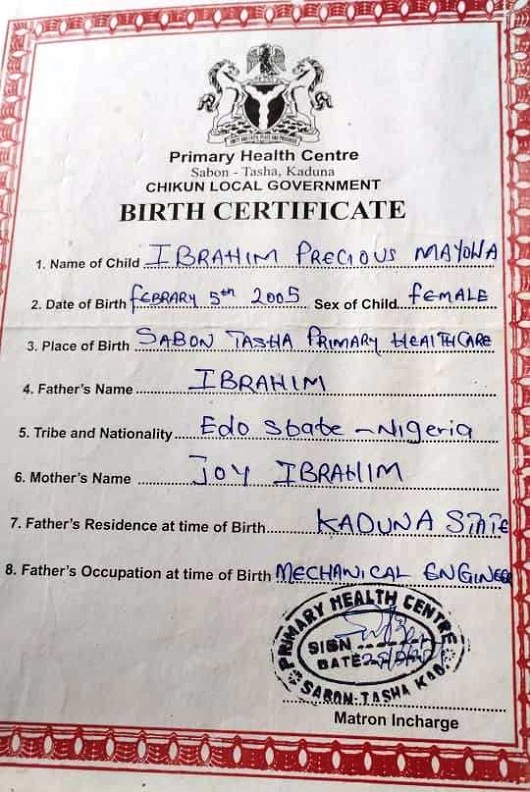 Primary Health Centre
Sabon - Tasha, Kaduna
CHIKUN LOCAL GOVERNMENT
BIRTH CERTIFICATE
1. Name of Child IBRAHIM PRECIOUS MAYOWA
2. Date of Birth FEBRARY 5th 2005 Sex of Child FEMALE
3. Place of Birth SABON TASHA PRIMARY HEALTHCARE
4. Father's Name IBRAHIM
5. Tribe and Nationality Edo State - Nigeria
6. Mother's Name JOY IBRAHIM
7. Father's Residence at time of Birth KADUNA STATE
8. Father's Occupation at time of Birth MECHANICAL ENGINEE
PRIMARY HEALTH CENTRE
SIGN
DATE
SABON-TASHA KAD.
Matron Incharge